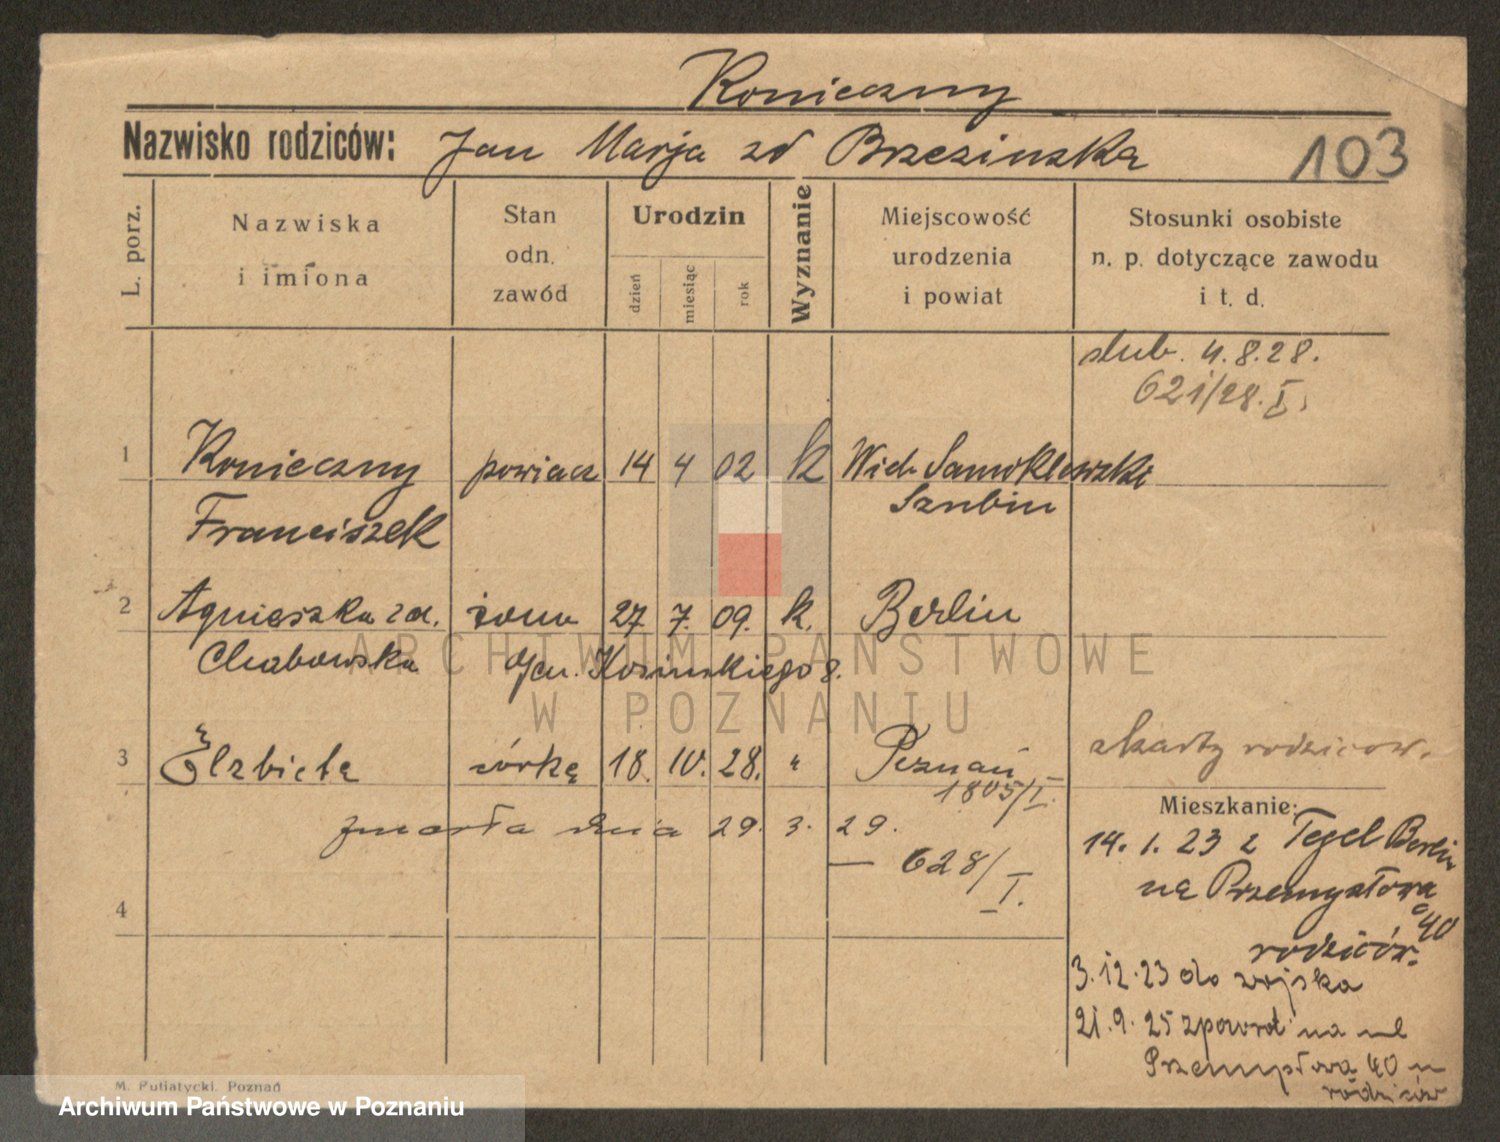 Konieczny
Nazwisko rodziców: Jan Marja zd Brzezinska 103
L. porz.
Nazwiska
i imiona
Stan
odn.
zawód
Urodzin
dzień
miesiąc
rok
Wyznanie
Miejscowość
urodzenia
i powiat
Stosunki osobiste
n. p. dotyczące zawodu
i t. d.
slub. 4.8.28.
621/28. I.
1 Konieczny powiacz 14 4 02 k Samoklewski
Szubin
Franciszek
2 Agnieszka zd. żona 27 7. 09. k. Berlin
Chabowska Jen. Kosinskiego 8.
3 Elzbieta córka 18. IV. 28. " Poznań
1805/I.
z karty rodzicow.
zmarła dnia 29. 3. 29.
— 628/I.
4
Mieszkanie:
14. 1. 23 z Tegel Berlin
na Przemysłowa
40
rodziców.
3.12.23 do wojska
21.9.25 zpowrot na ul
Przemysłowa 40 u
rodziców
M. Putiatycki, Poznań
ARCHIWUM PAŃSTWOWE
W POZNANIU
Archiwum Państwowe w Poznaniu